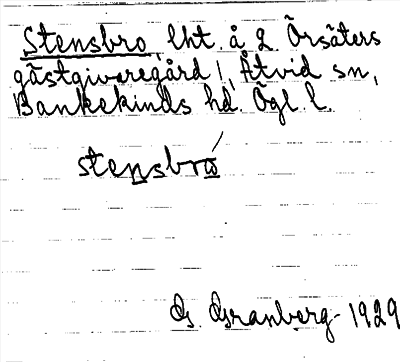 Stensbro, lht. å 2 Örsäters
gästgivaregård 1, Åtvid sn,
Bankekinds hd. Ögl. l.
stensbro
G. Granberg 1929